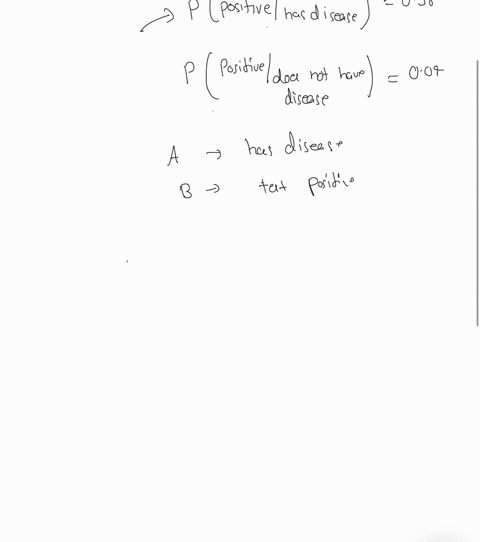 P (positive/has disease) =
P (Positive/does not have disease) = 0.04
A → has disease
B → test positive